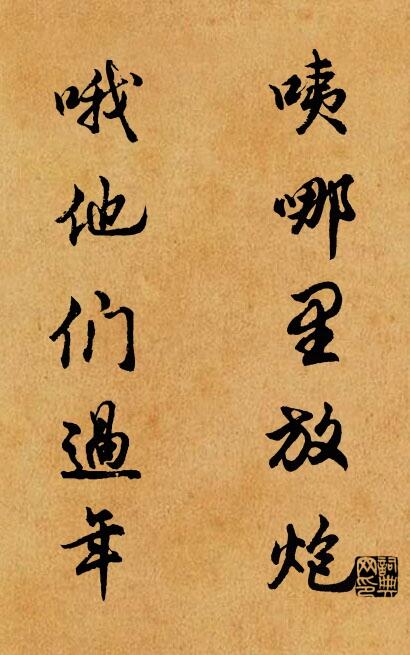 咦哪里放炮
哦他们過年
詞典网印